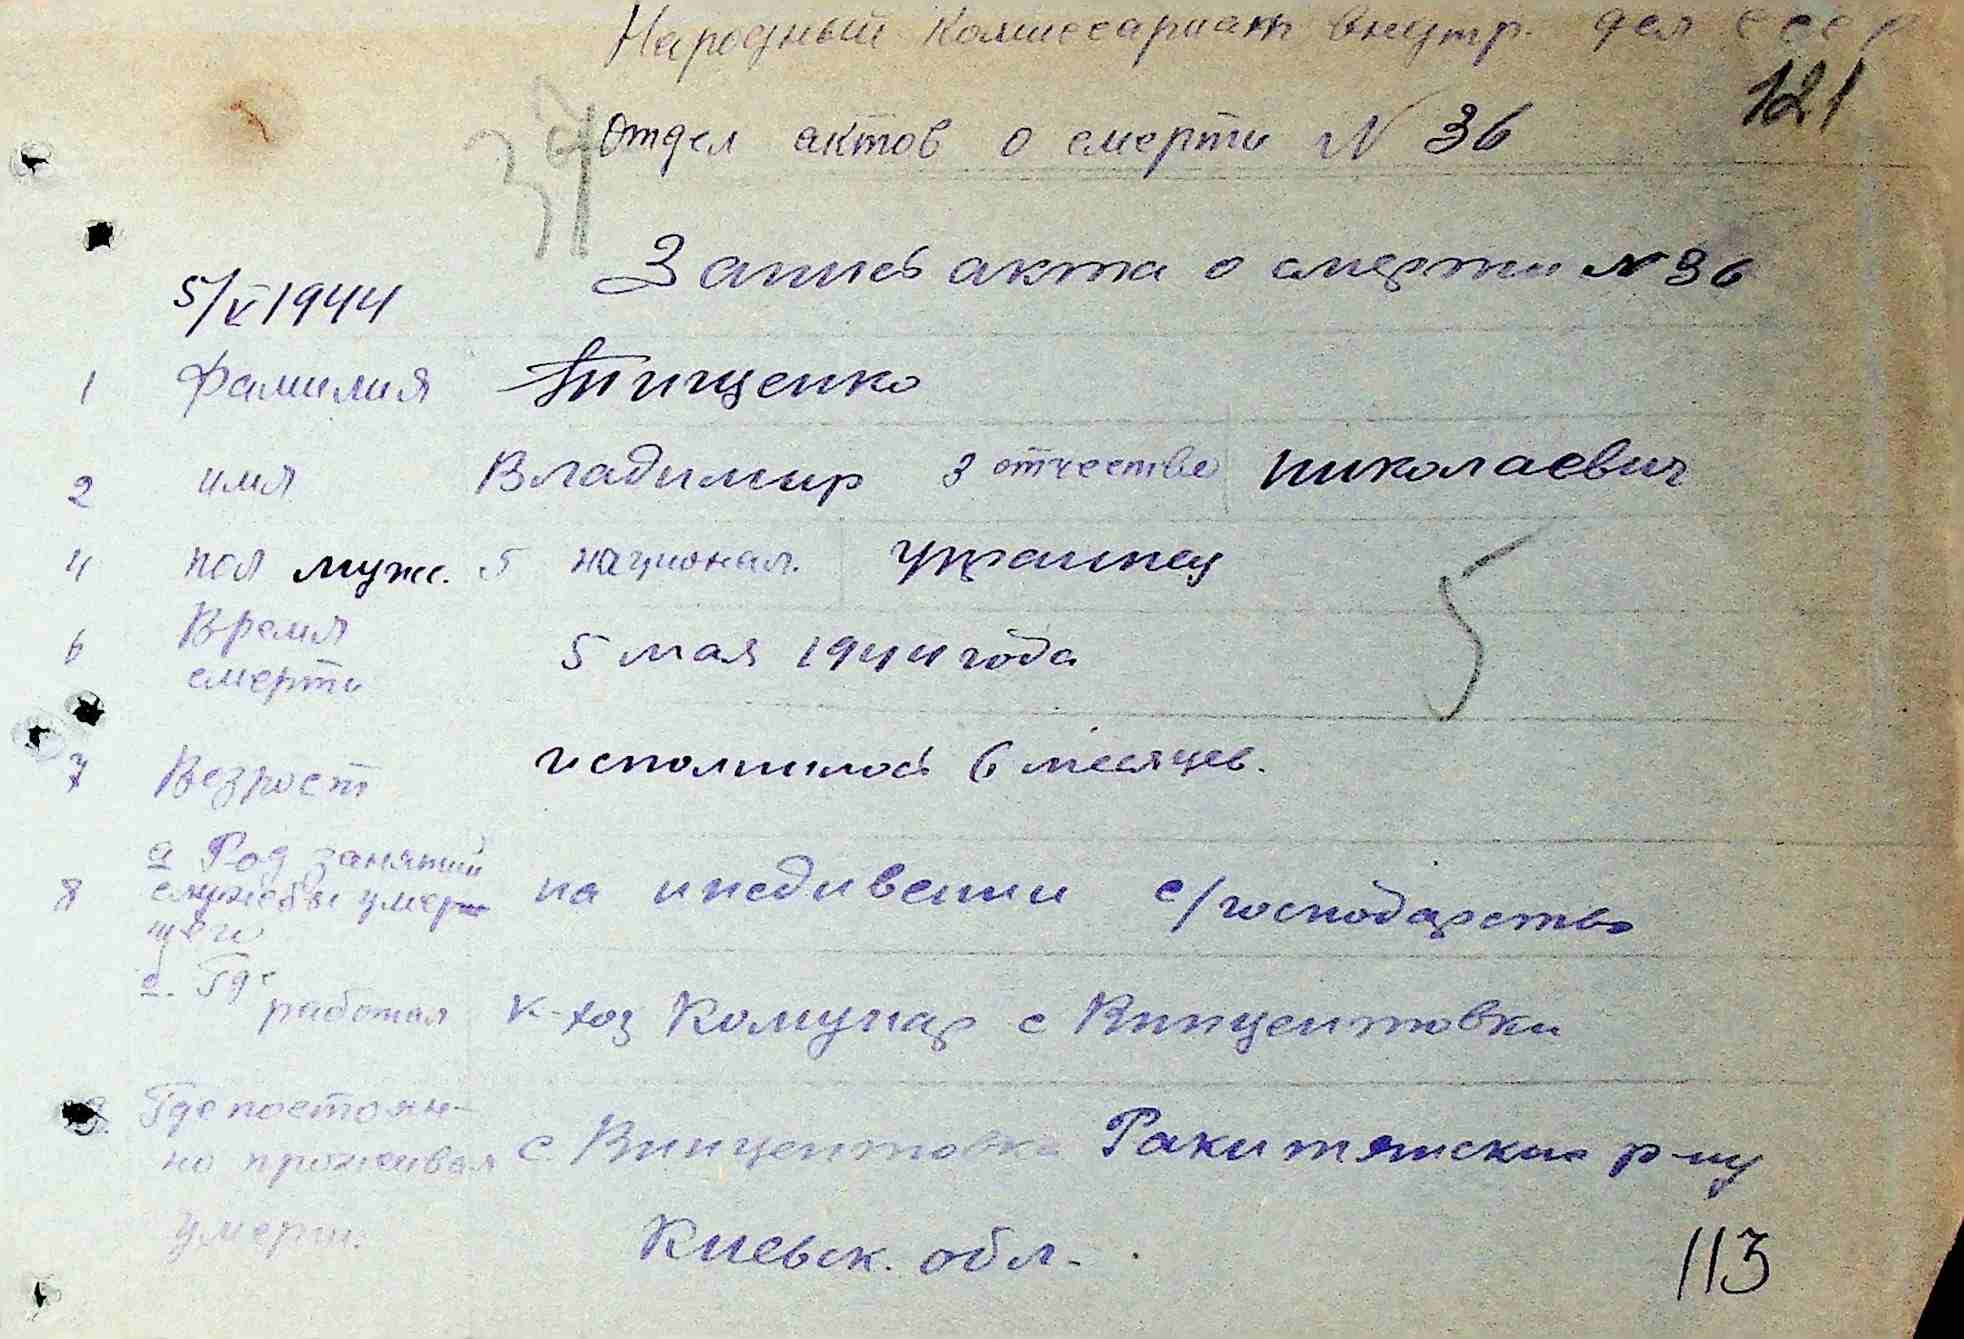 Народный Комиссариат внутр. дел СССР
121
37
Отдел актов о смерти N 36
Запись акта о смерти N 36
5/V 1944
1 Фамилия Тищенко
2 имя Владимир 3 отчество Николаевич
4 пол муж. 5 национал. Украинец
5
6 Время смерти 5 мая 1944 года
7 Возраст исполнилось 6 месяцев.
8 а Род занятий
службы умер
шего
на иждивении с/господарство
б. Где
работал к-хоз Комунар с Винцентовки
9. Где постоян-
но проживал с. Винцентовка Ракитянский р-ну
умерш. Киевск. обл.
113